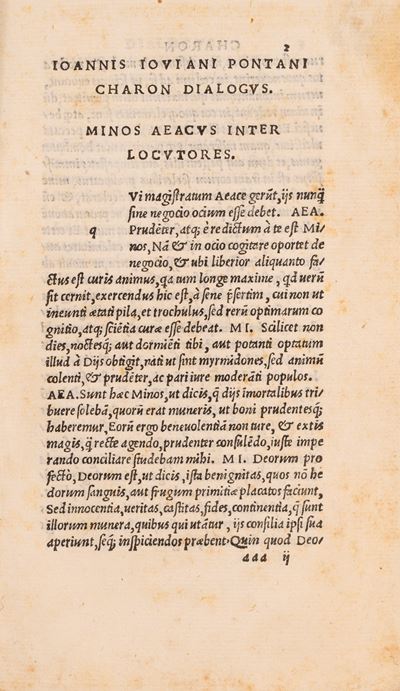 2
IOANNIS IOVIANI PONTANI
CHARON DIALOGVS.
MINOS AEACVS INTER
LOCVTORES.
q Vi magistratum Aeace gerũt, ijs nunq̃
sine negocio ocium esse debet. AEA.
Prudẽter, atq; è re dictum à te est Mi/
nos, Nã & in ocio cogitare oportet de
negocio, & ubi liberior aliquanto fa/
ctus est curis animus, qa tum longe maxime, qd uerũ
sit cernit, exercendus hic est, à sene p̃sertim, cui non ut
ineunti ætati pila, et trochulus, sed rerũ optimarum co
gnitio, atq; sciẽtia curæ esse debeat. MI. Scilicet non
dies, noctesq; aut dormiẽti tibi, aut potanti optatum
illud à Dijs obtigit, nati ut sint myrmidones, sed animũ
colenti, & prudẽter, ac pari iure moderãti populos.
AEA. Sunt hæc Minos, ut dicis, q̃ dijs imortalibus tri/
buere solebã, quorũ erat muneris, ut boni prudentesq;
haberemur, Eorũ ergo beneuolentiã non ture, & extis
magis, q̃ recte agendo, prudenter consulẽdo, iuste impe
rando conciliare studebam mihi. MI. Deorum pro
fectò, Deorum est, ut dicis, ista benignitas, quos nõ hę
dorum sanguis, aut frugum primitiæ placatos faciunt,
Sed innocentia, ueritas, castitas, fides, continentia, q̃ sunt
illorum munera, quibus qui utãtur, ijs consilia ipsi sua
aperiunt, seq; inspiciendos præbent. Quin quod Deo/
aaa ij